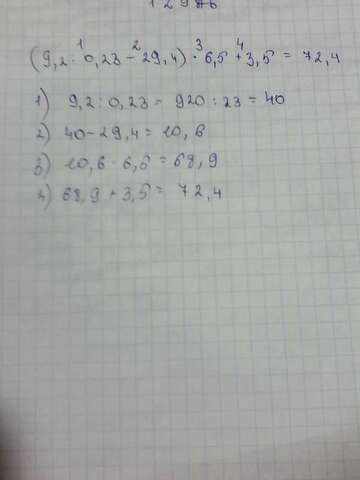 (9,2 : 0,23 - 29,4) · 6,5 + 3,5 = 72,4
1) 9,2 : 0,23 = 920 : 23 = 40
2) 40 - 29,4 = 10,6
3) 10,6 · 6,5 = 68,9
4) 68,9 + 3,5 = 72,4